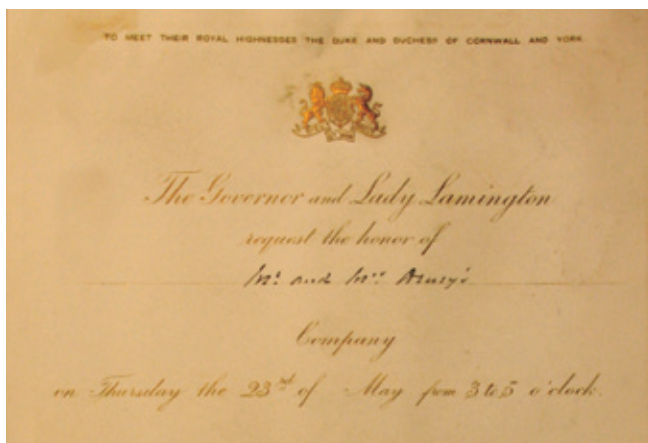 TO MEET THEIR ROYAL HIGHNESSES THE DUKE AND DUCHESS OF CORNWALL AND YORK.
The Governor and Lady Lamington
request the honor of
Mr. and Mrs.
Company
on Thursday the 23rd of May from 3 to 5 o'clock.